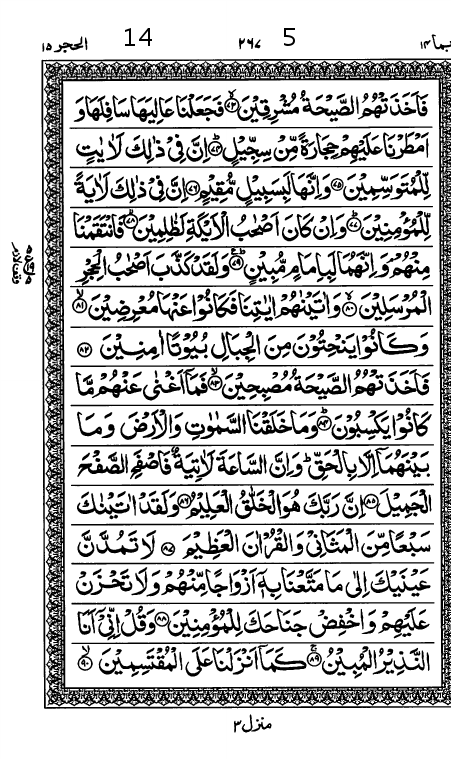 الحجر ۱۵ 14 ۲۶۷ 5 ربما ۱۴
فَاَخَذَتْهُمُ الصَّيْحَةُ مُشْرِقِيْنَ ۷۳ فَجَعَلْنَا عَالِيَهَا سَافِلَهَا وَ
اَمْطَرْنَا عَلَيْهِمْ حِجَارَةً مِّنْ سِجِّيْلٍ ۷۴ اِنَّ فِيْ ذٰلِكَ لَاٰيٰتٍ
لِّلْمُتَوَسِّمِيْنَ ۷۵ وَاِنَّهَا لَبِسَبِيْلٍ مُّقِيْمٍ ۷۶ اِنَّ فِيْ ذٰلِكَ لَاٰيَةً
لِّلْمُؤْمِنِيْنَ ۷۷ وَاِنْ كَانَ اَصْحٰبُ الْاَيْكَةِ لَظٰلِمِيْنَ ۷۸ فَانْتَقَمْنَا
مِنْهُمْ وَاِنَّهُمَا لَبِاِمَامٍ مُّبِيْنٍ ۷۹ وَلَقَدْ كَذَّبَ اَصْحٰبُ الْحِجْرِ
الْمُرْسَلِيْنَ ۸۰ وَاٰتَيْنٰهُمْ اٰيٰتِنَا فَكَانُوْا عَنْهَا مُعْرِضِيْنَ ۸۱
وَكَانُوْا يَنْحِتُوْنَ مِنَ الْجِبَالِ بُيُوْتًا اٰمِنِيْنَ ۸۲
فَاَخَذَتْهُمُ الصَّيْحَةُ مُصْبِحِيْنَ ۸۳ فَمَآ اَغْنٰى عَنْهُمْ مَّا
كَانُوْا يَكْسِبُوْنَ ۸۴ وَمَا خَلَقْنَا السَّمٰوٰتِ وَالْاَرْضَ وَمَا
بَيْنَهُمَآ اِلَّا بِالْحَقِّ ؕ وَاِنَّ السَّاعَةَ لَاٰتِيَةٌ فَاصْفَحِ الصَّفْحَ
الْجَمِيْلَ ۸۵ اِنَّ رَبَّكَ هُوَ الْخَلّٰقُ الْعَلِيْمُ ۸۶ وَلَقَدْ اٰتَيْنٰكَ
سَبْعًا مِّنَ الْمَثَانِيْ وَالْقُرْاٰنَ الْعَظِيْمَ ۸۷ لَا تَمُدَّنَّ
عَيْنَيْكَ اِلٰى مَا مَتَّعْنَا بِهٖٓ اَزْوَاجًا مِّنْهُمْ وَلَا تَحْزَنْ
عَلَيْهِمْ وَاخْفِضْ جَنَاحَكَ لِلْمُؤْمِنِيْنَ ۸۸ وَقُلْ اِنِّيْٓ اَنَا
النَّذِيْرُ الْمُبِيْنُ ۸۹ كَمَآ اَنْزَلْنَا عَلَى الْمُقْتَسِمِيْنَ ۹۰
منزل ۳